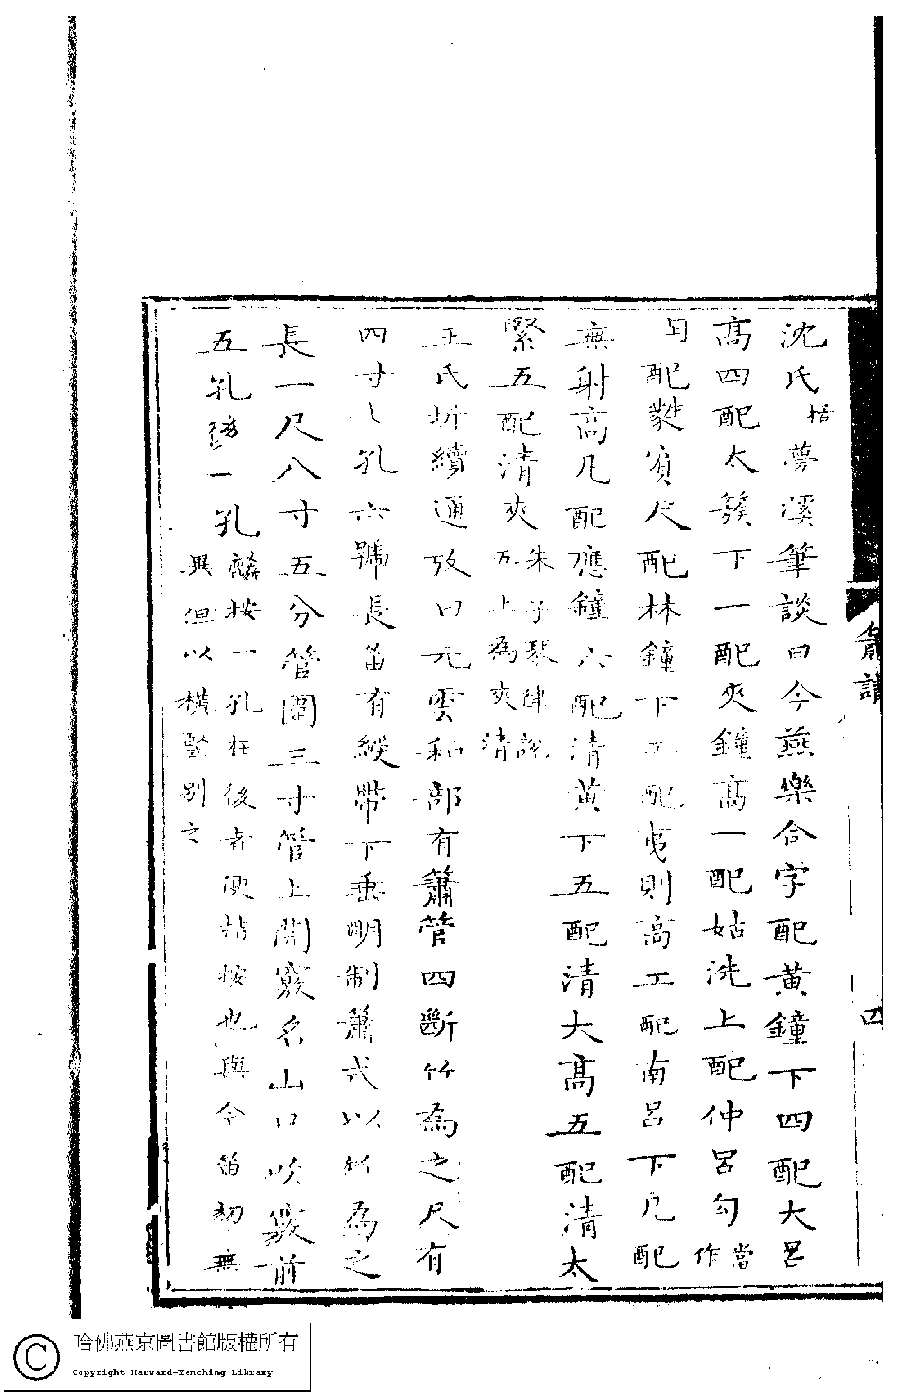 沈氏括夢溪筆談曰今燕樂合字配黃鐘下四配大呂
高四配太簇下一配夾鐘高一配姑洗上配仲呂勾當作
配蕤賓尺配林鐘下工配夷則高工配南呂下凡配
無射高凡配應鐘六配清黃下五配清大高五配清太
緊五配清夾朱子琴律說五上為夾清
王氏圻續通攷曰元雲和部有簫管四斷竹為之尺有
四寸八孔六號長笛有縱帶下垂明制簫式以竹為之
長一尺八寸五分管圍三寸管上開竅名山口吹竅前
五孔後一孔麟按一孔在後者便指按也與今笛初無
異但以橫豎別之
簫譜
四
哈佛燕京圖書館版權所有
Copyright Harvard-Yenching Library